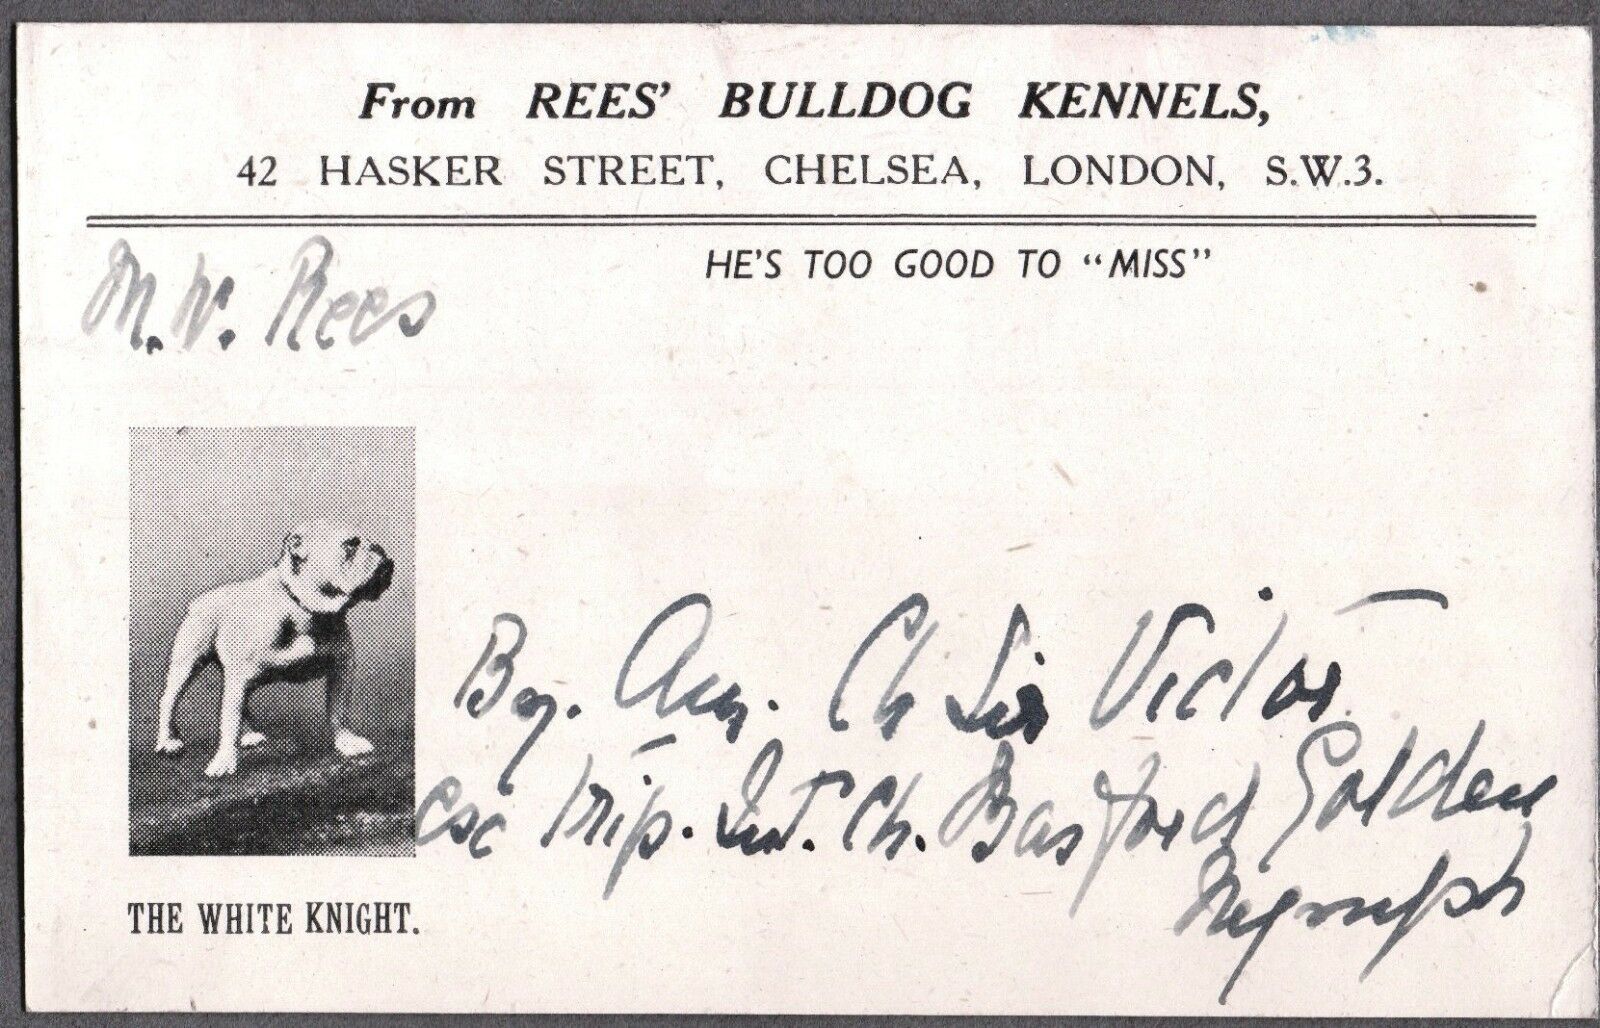 From REES' BULLDOG KENNELS,
42 HASKER STREET, CHELSEA, LONDON, S.W.3.
HE'S TOO GOOD TO “MISS”
M. W. Rees
By. Am. Ch Sir Victor
ese Trip. Int. Ch. Basford Golden
Nymph
THE WHITE KNIGHT.